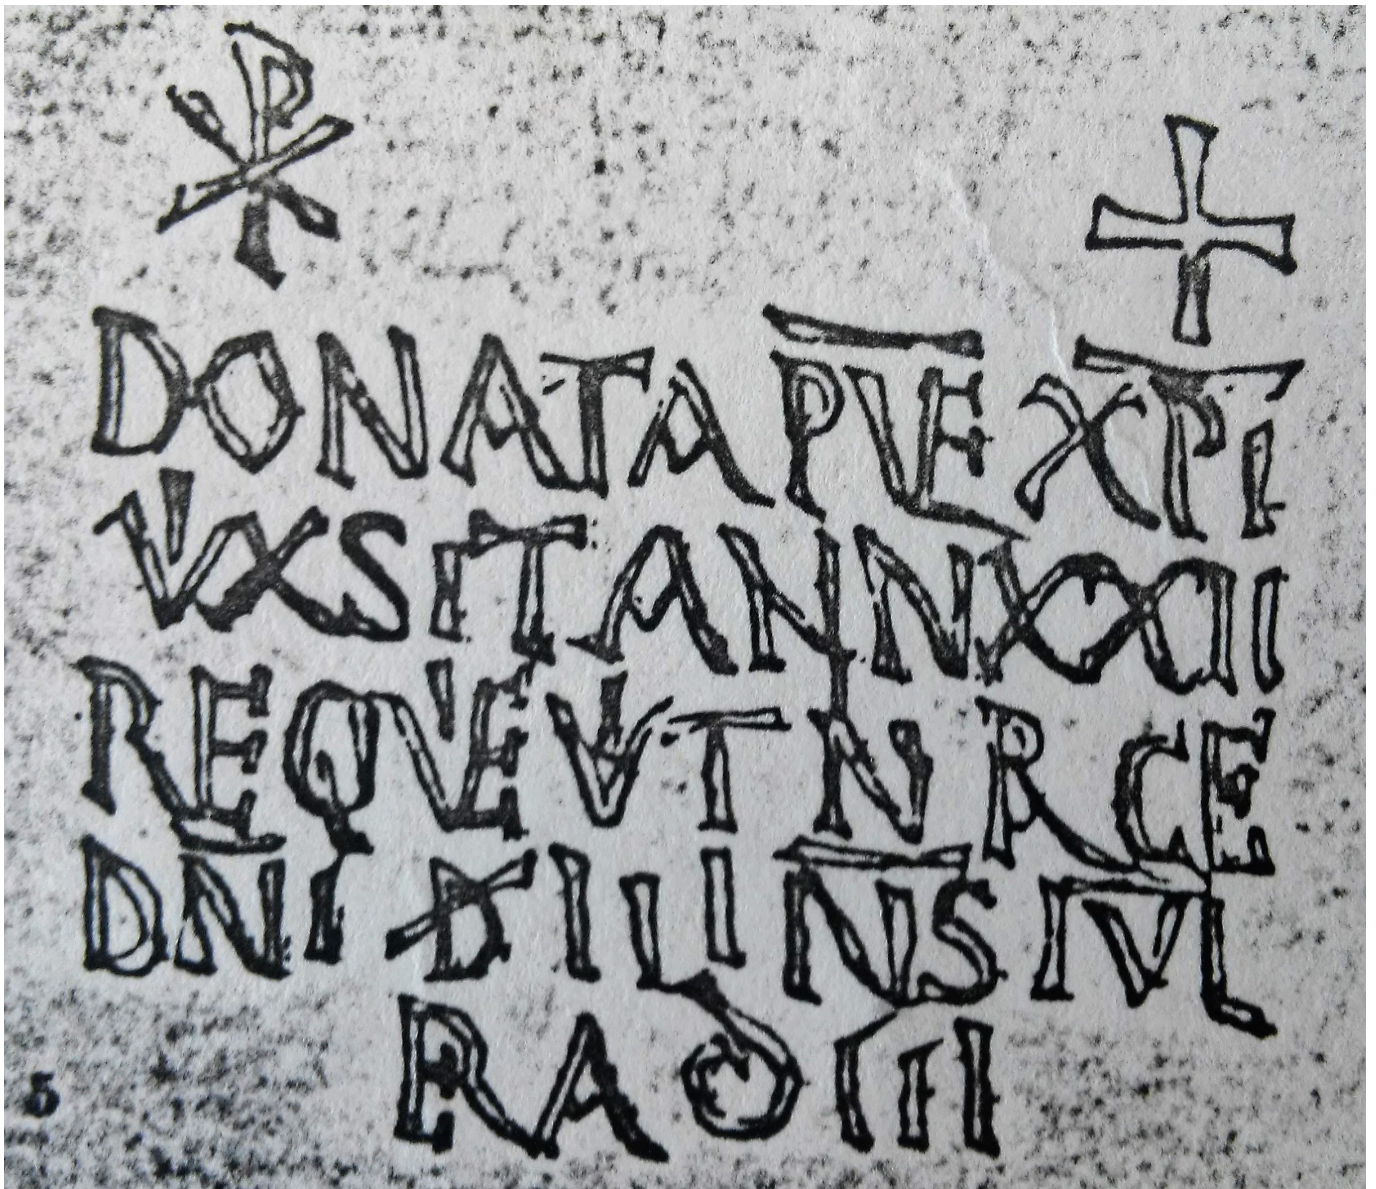 ☧ +
DONATA PVE XPI
VXSIT ANN XXII
REQVEVT N PACE
DNI D III NS IVL
ERA DCIII
5